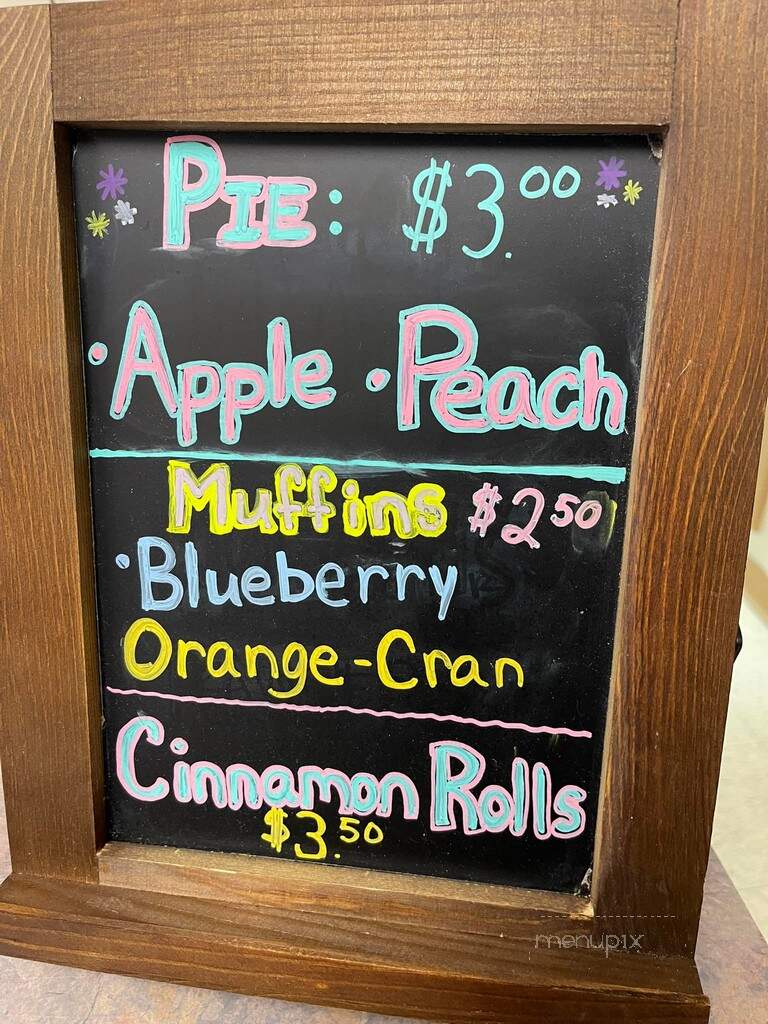 PIE: $3.00
·Apple ·Peach
Muffins $2.50
·Blueberry
Orange-Cran
Cinnamon Rolls
$3.50
menupix